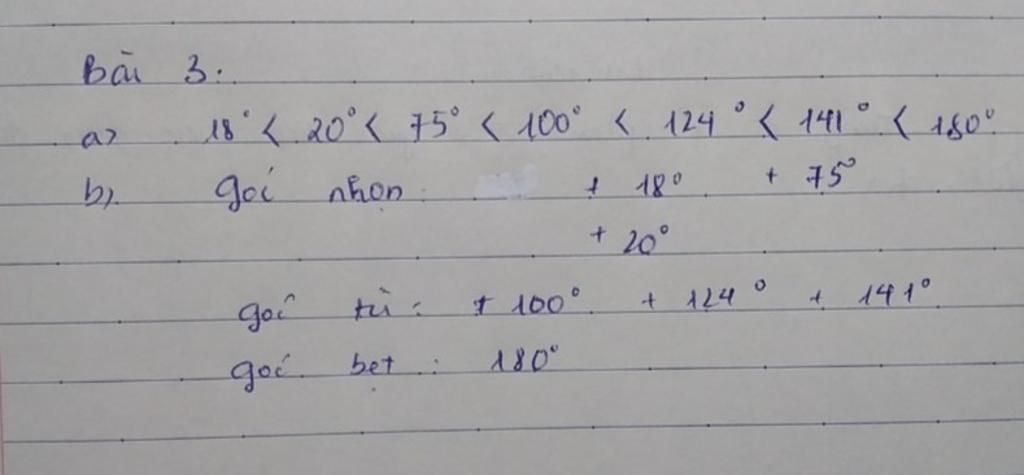 Bài 3:
a) 18° < 20° < 75° < 100° < 124° < 141° < 180°
b) góc nhọn: + 18° + 75°
+ 20°
góc tù: + 100° + 124° + 141°
góc bẹt: 180°